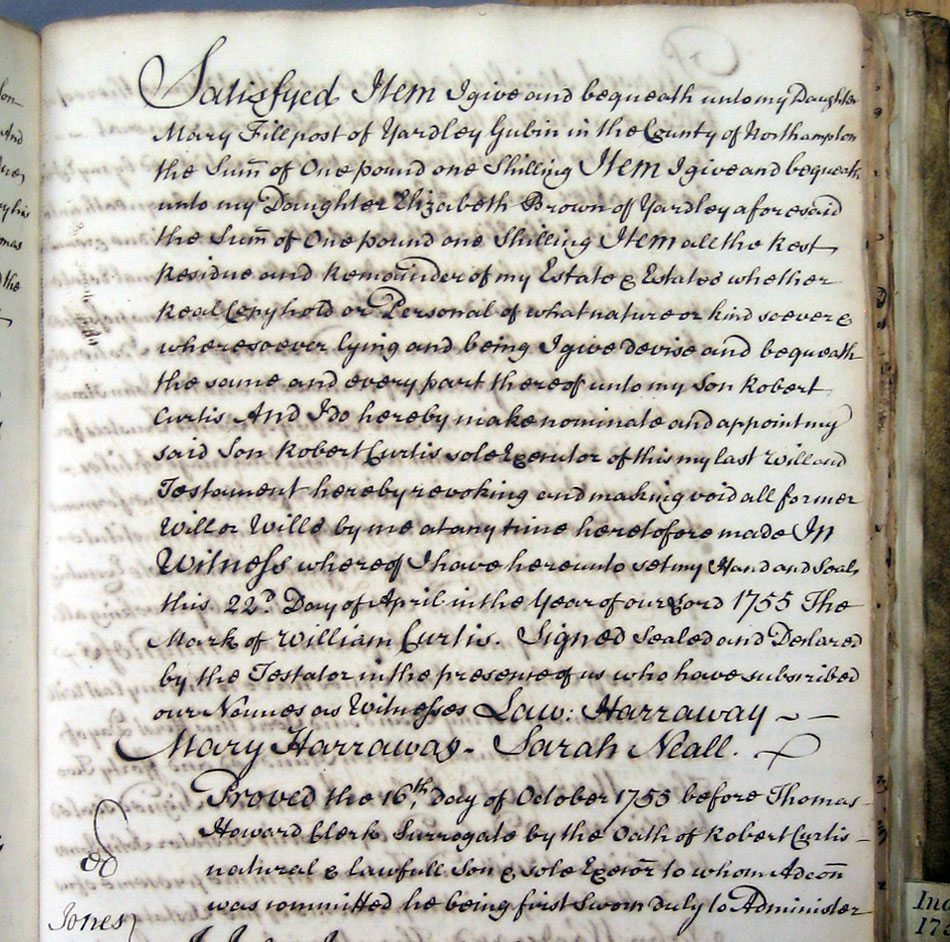 Satisfyed Item I give and bequeath unto my Daughter
Mary Fillpost of Yardley Gubin in the County of Northampton
the Sum̄ of One pound one Shilling Item I give and bequeath
unto my Daughter Elizabeth Brown of Yardley aforesaid
the Sum̄ of One pound one Shilling Item all the Rest
Residue and Remainder of my Estate & Estates whether
Real Copyhold or Personal of what nature or kind soever &
wheresoever lying and being I give devise and bequeath
the same and every part thereof unto my Son Robert
Curtis And I do hereby make nominate and appoint my
said Son Robert Curtis sole Executor of this my last Will and
Testament hereby revoking and making void all former
Will or Wills by me at any time heretofore made In
Witness whereof I have hereunto set my Hand and Seal
this 22d Day of April in the Year of our Lord 1755 The
Mark of William Curtis. Signed Sealed and Declared
by the Testator in the presence of us who have subscribed
our Names as Witnesses Law: Harraway ~ —
Mary Harraway - Sarah Neall.
Proved the 16th day of October 1755 before Thomas
Howard Clerk Surrogate by the Oath of Robert Curtis -
natural & lawfull Son & sole Exec̄or to whom Adcōn
was committed he being first Sworn duly to Administer
Jones
And
omas
the
Ind
17